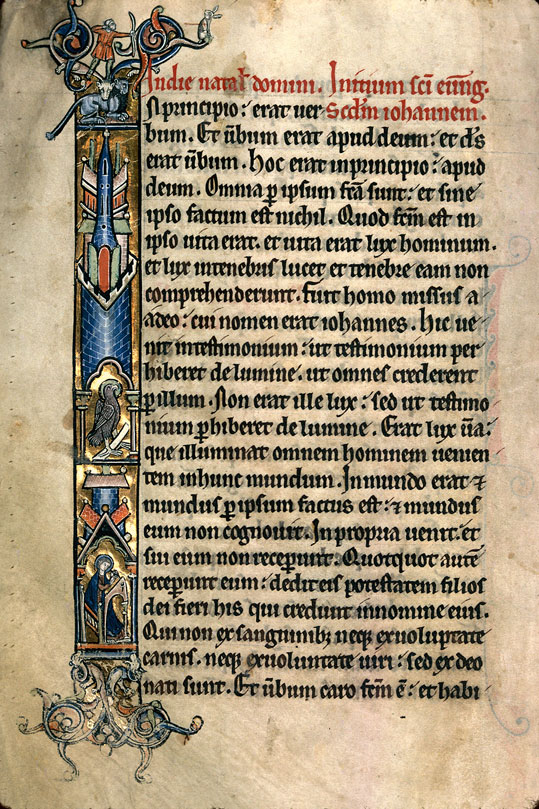 In die natal' domini. Initium sci euug.
In principio: erat uer Scdm iohannem.
bum. Et ubum erat apud deum: et ds
erat ubum. Hoc erat in principio: apud
deum. Omnia p ipsum fca sunt: et sine
ipso factum est nichil. Quod fcm est in
ipso uita erat. et uita erat lux hominum.
et lux in tenebris lucet et tenebre eam non
comprehenderunt. Fuit homo missus a
adeo: cui nomen erat iohannes. Hic ue
nit in testimonium: ut testimonium per
hiberet de lumine. ut omnes crederent
p illum. Non erat ille lux: sed ut testimo
nium phiberet de lumine. Erat lux ua:
que illuminat omnem hominem uenien
tem in hunc mundum. In mundo erat ⁊
mundus p ipsum factus est: ⁊ mundus
eum non cognouit. In propria uenit. et
sui eum non receperunt. Quotquot aute
receperunt eum: dedit eis potestatem filios
dei fieri his qui credunt in nomine eius.
Qui non ex sanguinibz neqz ex uoluptate
carnis. neqz ex uoluntate uiri: sed ex deo
nati sunt. Et ubum caro fcm e: et habi